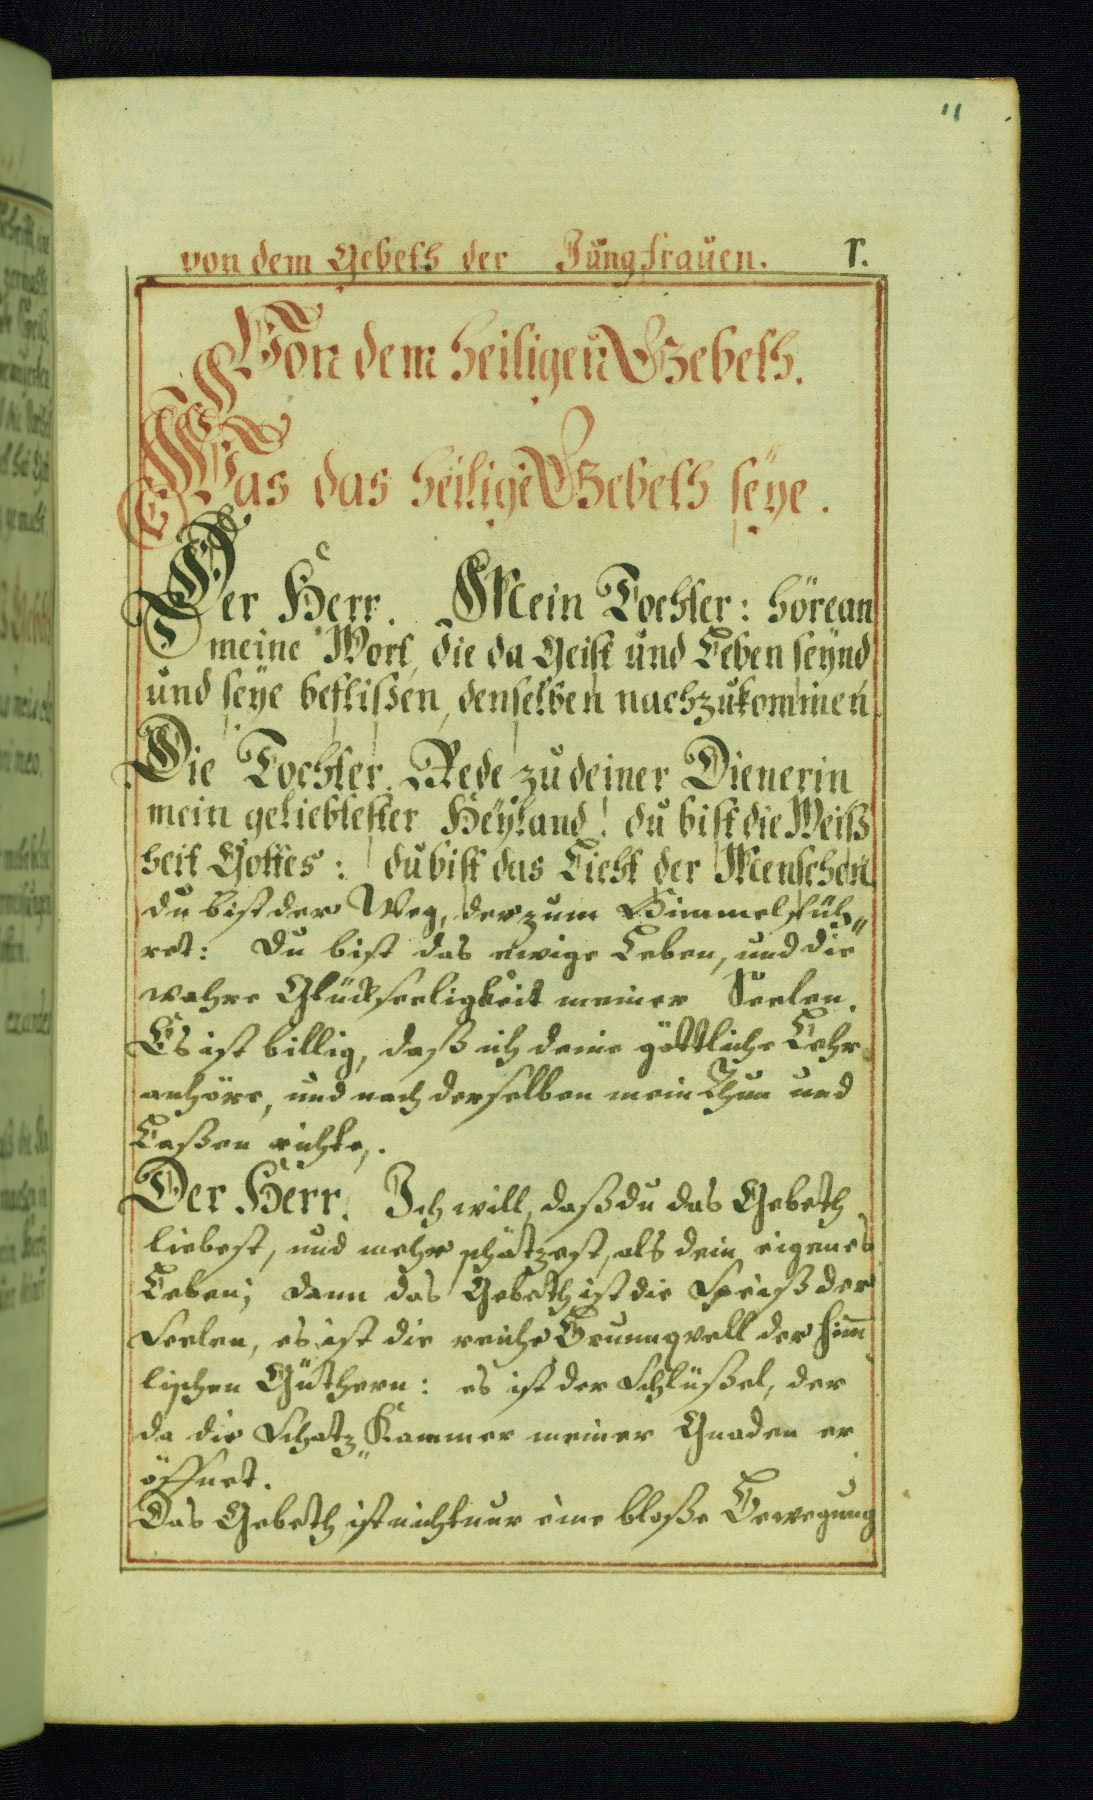 11
von dem Gebeth der Jungfrauen. 1.
Von dem heiligen Gebeth.
Was das heilige Gebeth seÿe.
Der Herr. Mein Tochter: höre an
meine Wort, die da Geist und Leben seÿnd
und seÿe beflißen, denselben nachzukommen.
Die Tochter. Rede zu deiner Dienerin
mein geliebtester Heÿland! du bist die Weiß
heit Gottes: du bist das Liecht der Menschen
du bist der Weg, der zum Himmel füh„
ret: Du bist das ewige Leben, und die
wahre Glückseeligkeit meiner Seelen.
Es ist billig, daß ich deine göttliche Lehr
anhöre, und nach derselben mein Thun und
Laßen richte.
Der Herr. Ich will, daß du das Gebeth
liebest, und mehr schätzest, als dein eigenes
Leben; dann das Gebeth ist die Speiß der
Seelen, es ist die reiche Brunnqvell der him̅
lischen Güthern: es ist der Schlüßel, der
da die Schatz„Kammer meiner Gnaden er
öffnet.
Das Gebeth ist nicht nur eine bloße Bewegung